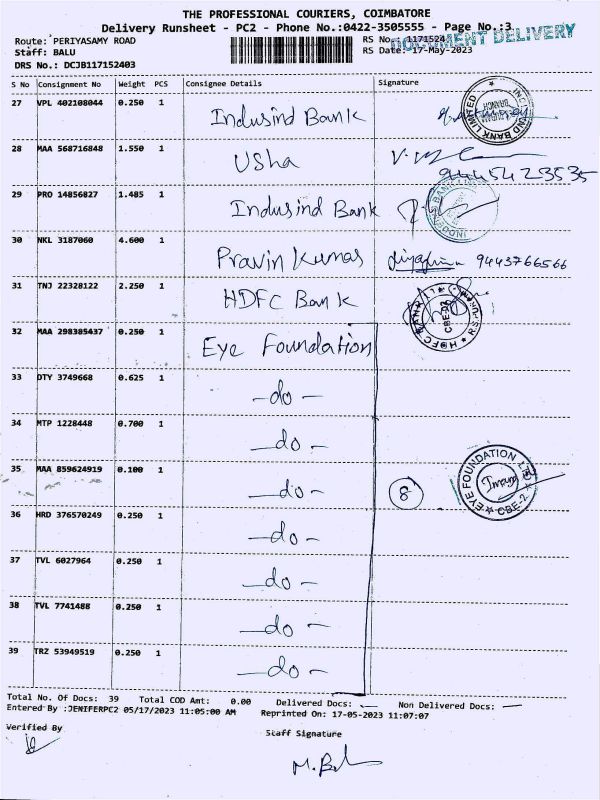 THE PROFESSIONAL COURIERS, COIMBATORE
Delivery Runsheet - PC2 - Phone No.:0422-3505555 - Page No.:3
Route: PERIYASAMY ROAD RS No. :1171524
DOCUMENT DELIVERY
Staff: BALU RS Date: 17-May-2023
DRS No.: DCJB117152403
S No Consignment No Weight PCS Consignee Details Signature
27 VPL 402108044 0.250 1 Indusind Bank
INDUSIND BANK LIMITED BRANCH
28 MAA 568716848 1.550 1 Usha
9445423535
29 PRO 14856827 1.485 1 Indusind Bank
30 NKL 3187060 4.600 1 Pravin Kumar 9443766566
31 TNJ 22328122 2.250 1 HDFC Bank
HDFC BANK CBE-02
32 MAA 298385437 0.250 1 Eye Foundation
33 DTY 3749668 0.625 1 -do-
34 MTP 1228448 0.700 1 -do-
35 MAA 859624919 0.100 1 -do- 8
EYE FOUNDATION CBE-2
36 HRD 376570249 0.250 1 -do-
37 TVL 6027964 0.250 1 -do-
38 TVL 7741488 0.250 1 -do-
39 TRZ 53949519 0.250 1 -do-
Total No. Of Docs: 39 Total COD Amt: 0.00 Delivered Docs: — Non Delivered Docs: —
Entered By :JENIFERPC2 05/17/2023 11:05:00 AM Reprinted On: 17-05-2023 11:07:07
Verified By Staff Signature